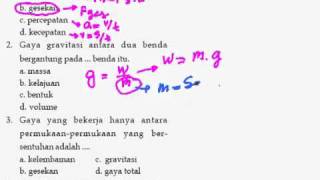 b. gesekan → Fges
c. percepatan → a = v/t
d. kecepatan → v = s/t
2. Gaya gravitasi antara dua benda
bergantung pada ... benda itu.
a. massa
b. kelajuan
c. bentuk
d. volume
g = w/m
w = m.g
m = s
3. Gaya yang bekerja hanya antara
permukaan-permukaan yang ber-
sentuhan adalah ....
a. kelembaman c. gravitasi
b. gesekan d. gaya total